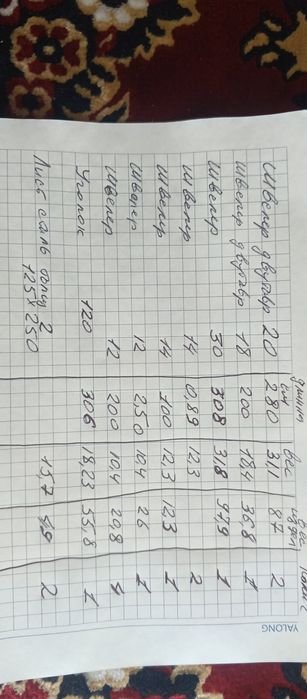 длина см вес вес издел
Швелир двутавр 20 280 31,1 87 2
Швелир двутавр 18 200 18,4 36,8 1
Швелир 30 308 31,8 97,9 1
Швелир 14 0,89 12,3 2
Швелир 14 100 12,3 12,3 1
Швелир 12 250 10,4 26 1
Швелир 12 200 10,4 20,8 1
Уголок 120 306 18,23 55,8 1
Лист сталь толщ 2
125x250 15,7 49 2
YALONG